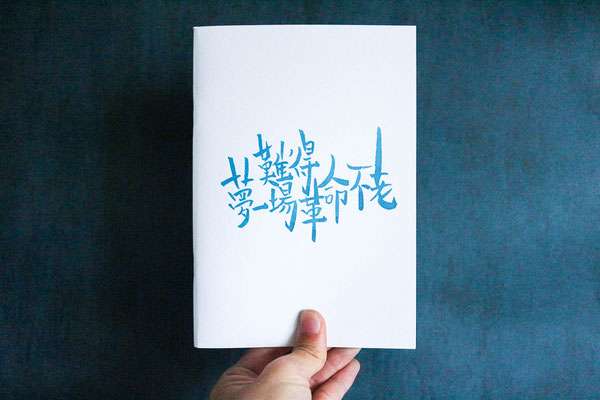 難得
夢一場革命不老